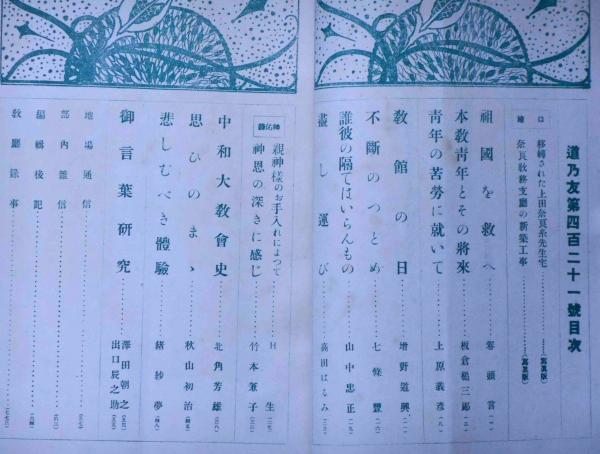 道乃友第四百二十一號目次
口繪
移轉された上田奈良糸先生宅………(寫眞版)
奈良敎務支廳の新築工事………(寫眞版)
祖國を救へ………卷頭言…(一)
本敎靑年とその將來………板倉槌三郎…(三)
靑年の苦勞に就いて………上原義彦…(八)
敎館の日………增野道興…(一一)
不斷のつとめ………七條豐…(一六)
誰彼の隔てはいらんもの………山中忠正…(一九)
盡し運び………高田はるみ
神佑錄
親神樣のお手入れによつて………H生
神恩の深きに感じ………竹本兼子
中和大敎會史………北角芳雄
思ひのまゝ………秋山初治
悲しむべき體驗………緖紗夢
御言葉硏究………澤田朝之
出口辰之助
地場通信………
部內雜信………
編輯後記………
敎廳錄事………